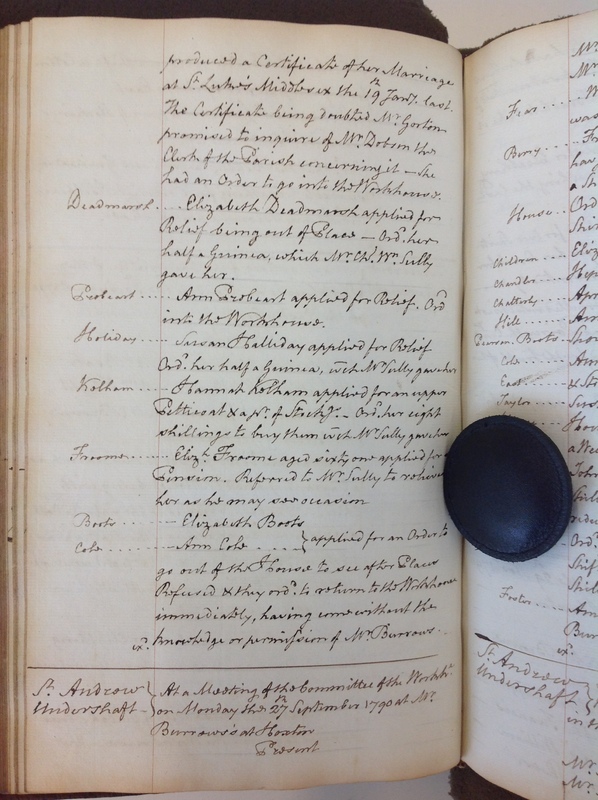 produced a Certificate of her Marriage
at St. Luke's Middlesex the 19th Jany. last.
The Certificate being doubted Mr. Gorton
promised to inquire of Mr. Dobson the
Clerk of the Parish concerning it — She
had an Order to go into the Workhouse.
Deadmarsh .... Elizabeth Deadmarsh applied for
Relief being out of Place — Ord. her
half a Guinea, which Mr. Chl. Wn. Sully
gave her.
Probeart ..... Ann Probeart applied for Relief. Ord
into the Workhouse.
Holiday ..... Susan Halliday applied for Relief
Ord. her half a Guinea, wch Mr. Sully gave her
Kelham ..... Hannah Kelham applied for an upper
Petticoat & a pr. of Stockgs. — Ord. her eight
shillings to buy them wch Mr. Sully gave her
Froome ..... Elizt. Froome aged sixty one applied for
Pension. Refered to Mr. Sully to relieve
her as he may see occasion
Boots ..... Elizabeth Boots
Cole ..... Ann Cole .... } applied for an Order to
go out of the House to see after Places
Refused & they ord. to return to the Workhouse
immediately, having come without the
ex. knowledge or permission of Mr. Burrows.
St. Andrew } At a Meeting of the Committee of the Workhe.
Undershaft } on Monday the 27th September 1790 at Mr.
Burrows's at Hoxton
Present
Mr.
Mr.
Fear ..... W
was
Berry ..... Fr
hav
a Sh
House ... Ord
Shir
Children ..... Eliz
Chandler ..... Hep
Chatterly ..... Apr
Hill ..... Am
Cole ..... Ann
East ..... & St
Taylor ..... Sus
a We
John
Shill
redu
Ord.
Shif
Shill
Foster ..... Ann
Burr
ex.
St. Andrew
Undershaft
in th
Mr.
Mr.